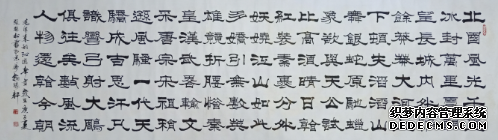 北國風光千里
冰封萬里雪飄
望長城內外惟
餘莽莽大河上
下頓失滔滔山
舞銀蛇原馳蠟
象欲與天公試
比高須晴日看
紅裝素裹分外
妖嬈江山如此
多嬌引無數英
雄競折腰惜秦
皇漢武略輸文
采唐宗宋祖稍
遜風騷一代天
驕成吉思汗只
識彎弓射大雕
俱往矣數風流
人物還看今朝